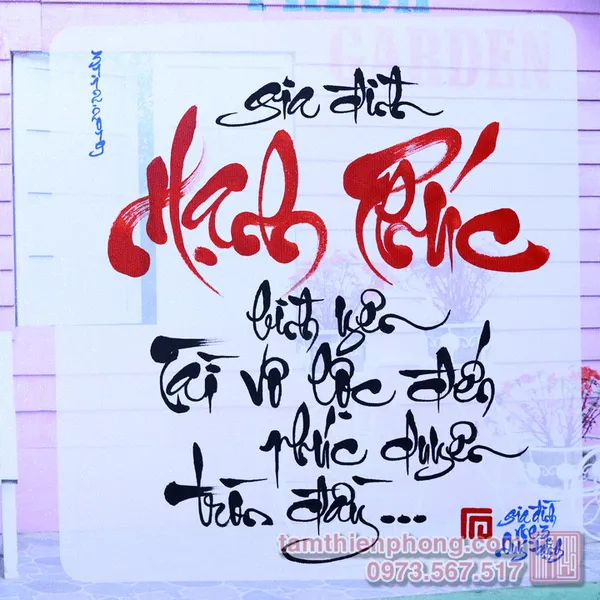 FRESH
GARDEN
gia đình
Hạnh Phúc
bình yên
Tài vô lộc đến
phúc duyên
tròn đầy...
gia đình
tamthienphong.com
0973.567.517